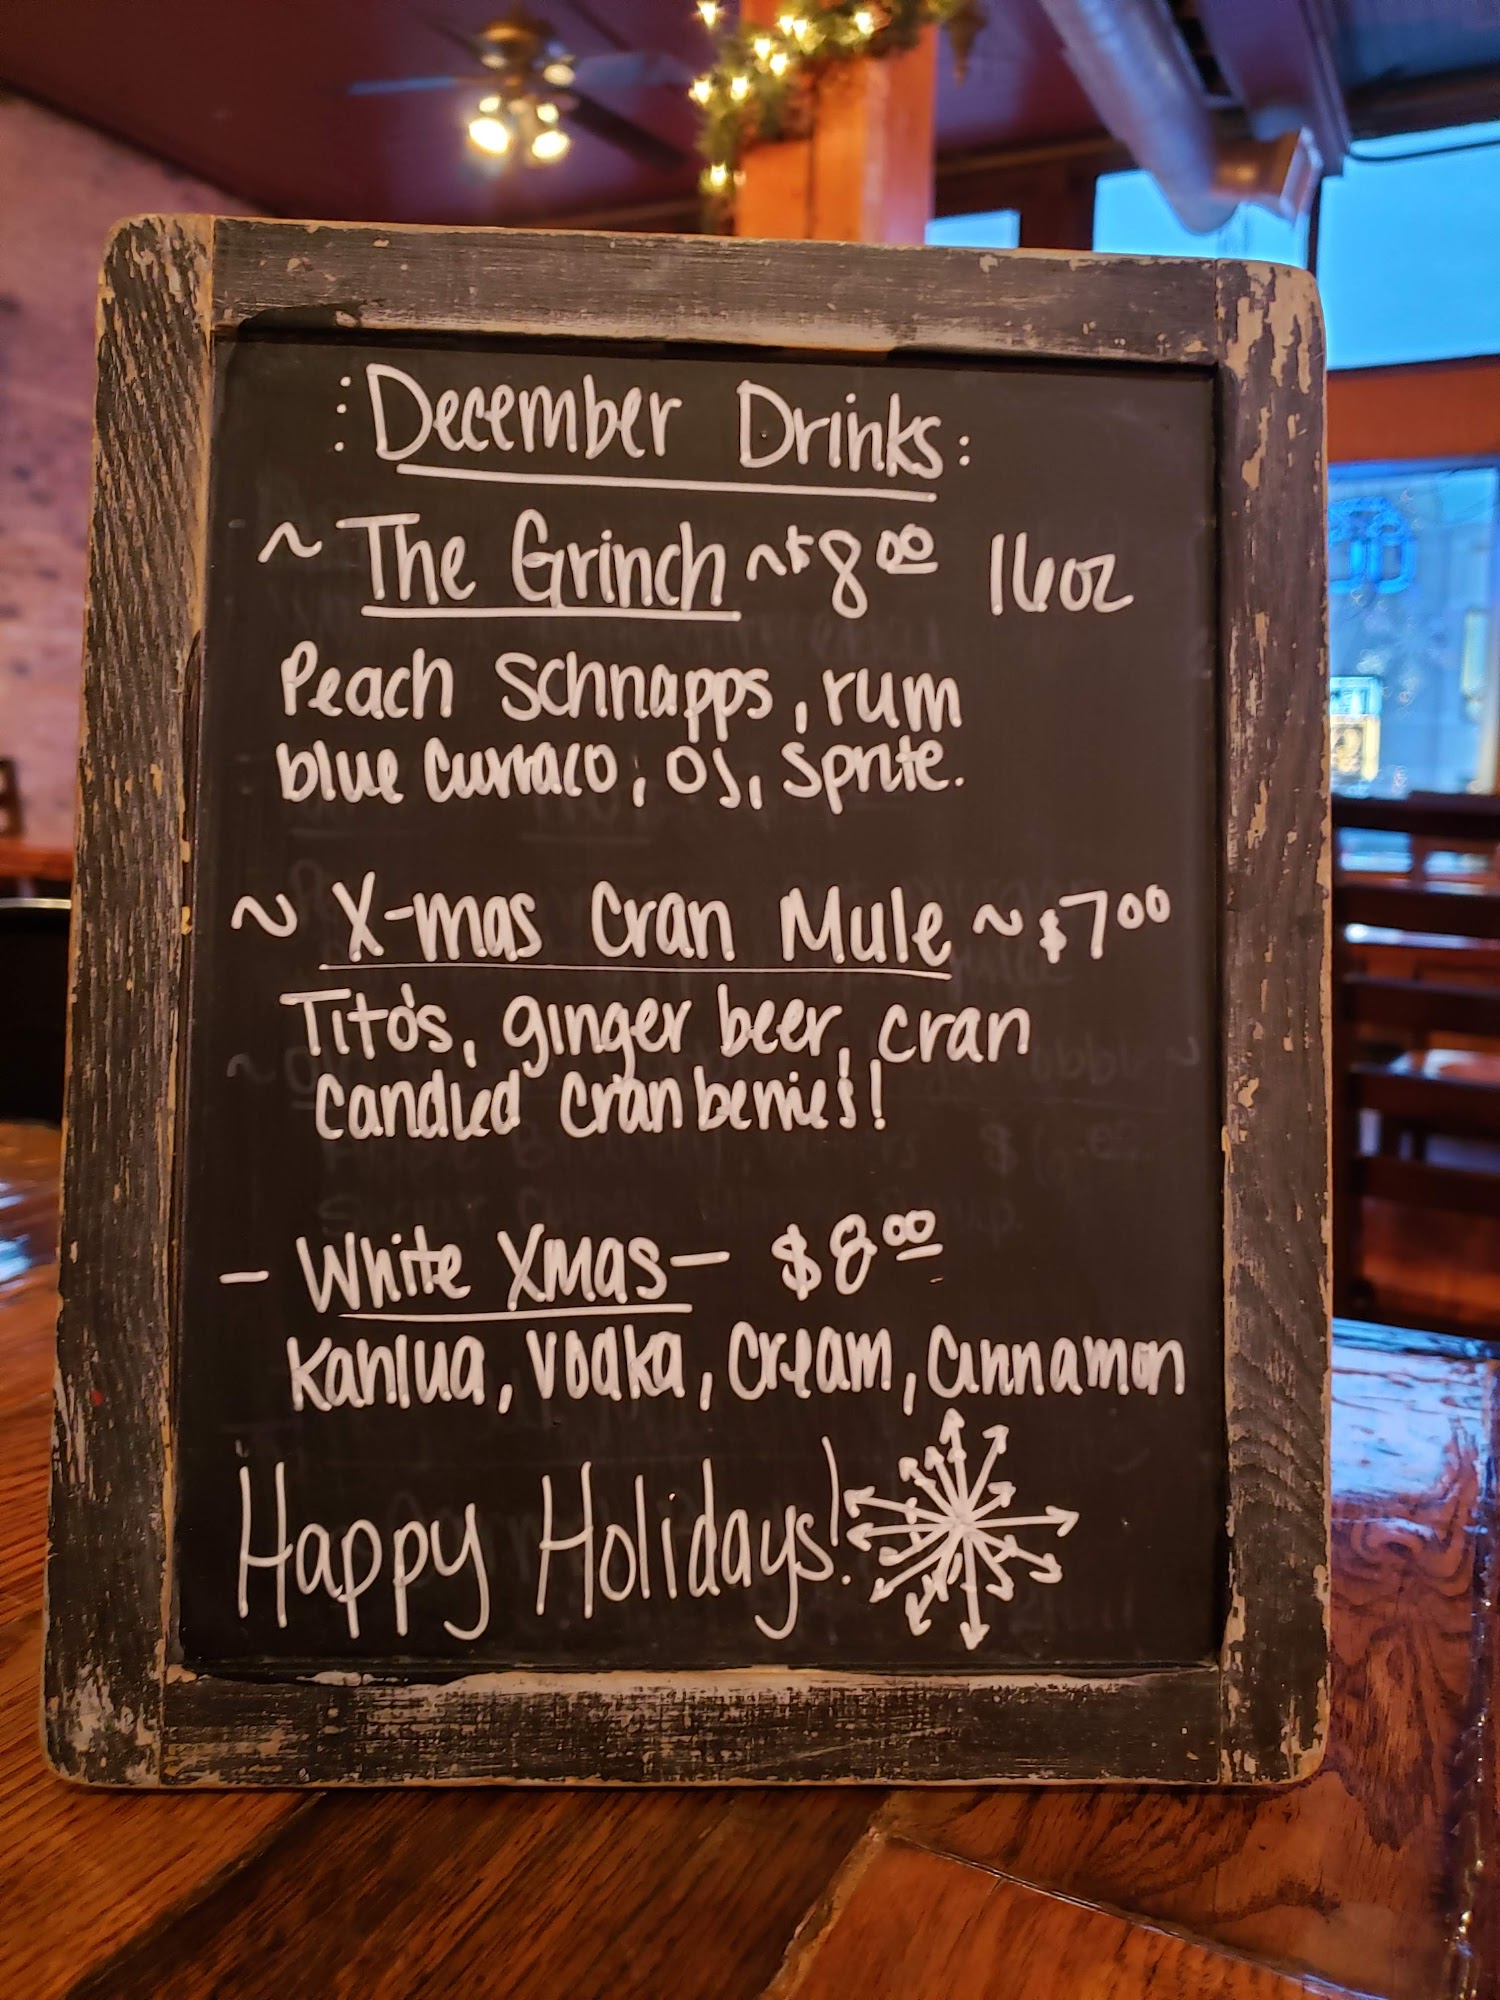 :December Drinks:
~ The Grinch ~ $8.00 16oz
Peach Schnapps, rum
blue Curraco, OJ, Sprite.
~ X-mas Cran Mule ~ $7.00
Tito's, ginger beer, cran
candied cranberries!
- White Xmas - $8.00
Kahlua, Vodka, Cream, Cinnamon
Happy Holidays!